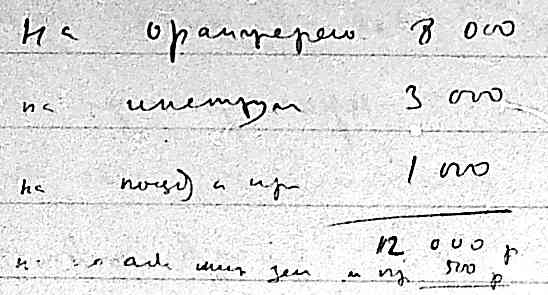 На оранжерею 8 000
на инструм 3 000
на поезд и пр 1 000
12 000 р
и пр 500 р